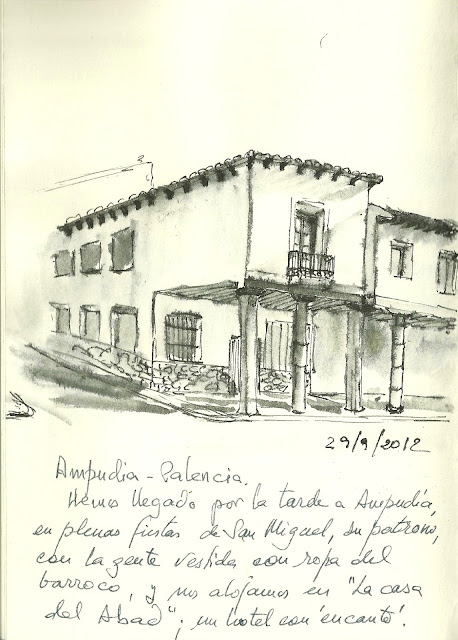 29/9/2012
Ampudia - Palencia.
Hemos llegado por la tarde a Ampudia,
en plenas fiestas de San Miguel, su patrono,
con la gente vestida con ropa del
barroco, y nos alojamos en "La casa
del Abad"; un hotel con 'encanto'.